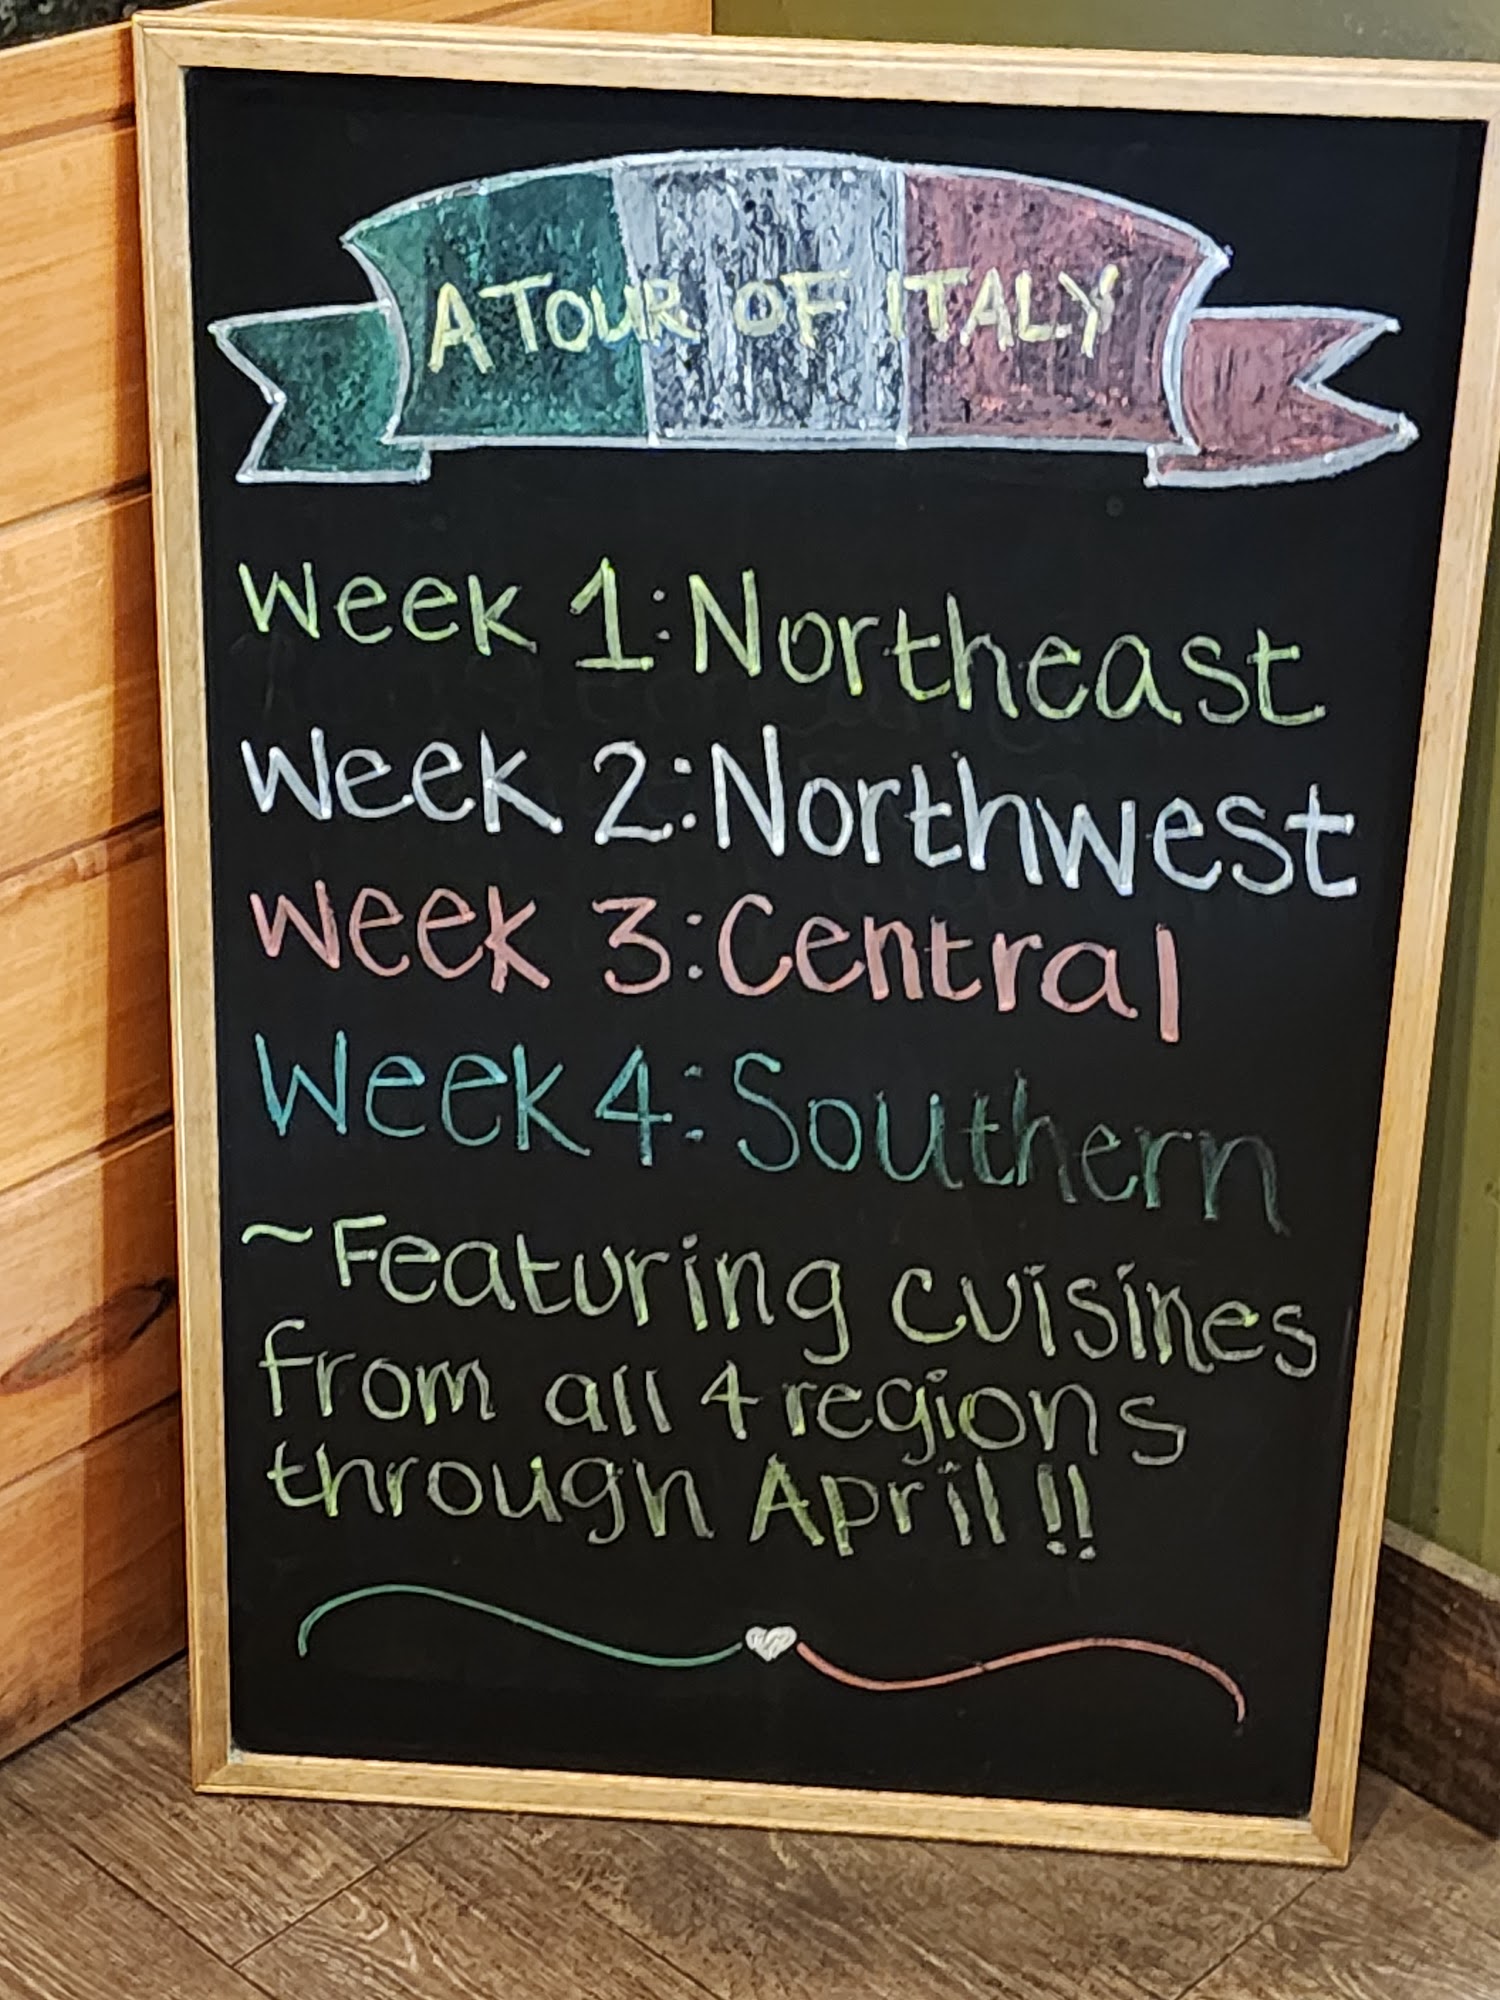 A TOUR OF ITALY
Week 1: Northeast
Week 2: Northwest
Week 3: Central
Week 4: Southern
~Featuring cuisines
from all 4 regions
through April!!